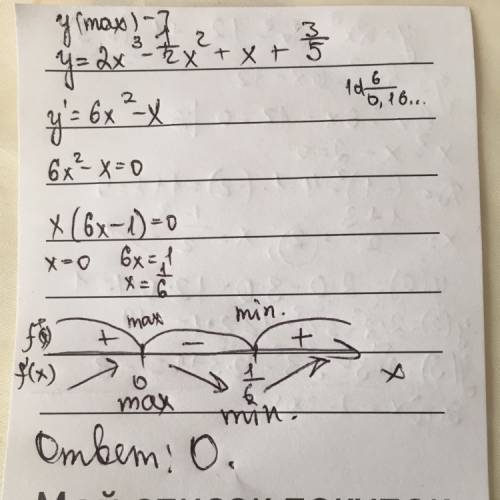 y(max) - ?
y = 2x³ - 1/2 x² + x + 3/5
10 | 6
0,16...
y' = 6x² - x
6x² - x = 0
x(6x-1) = 0
x = 0 6x = 1
x = 1/6
max min.
+ - +
f'(x) 0 1/6 x
max min.
Ответ: 0.